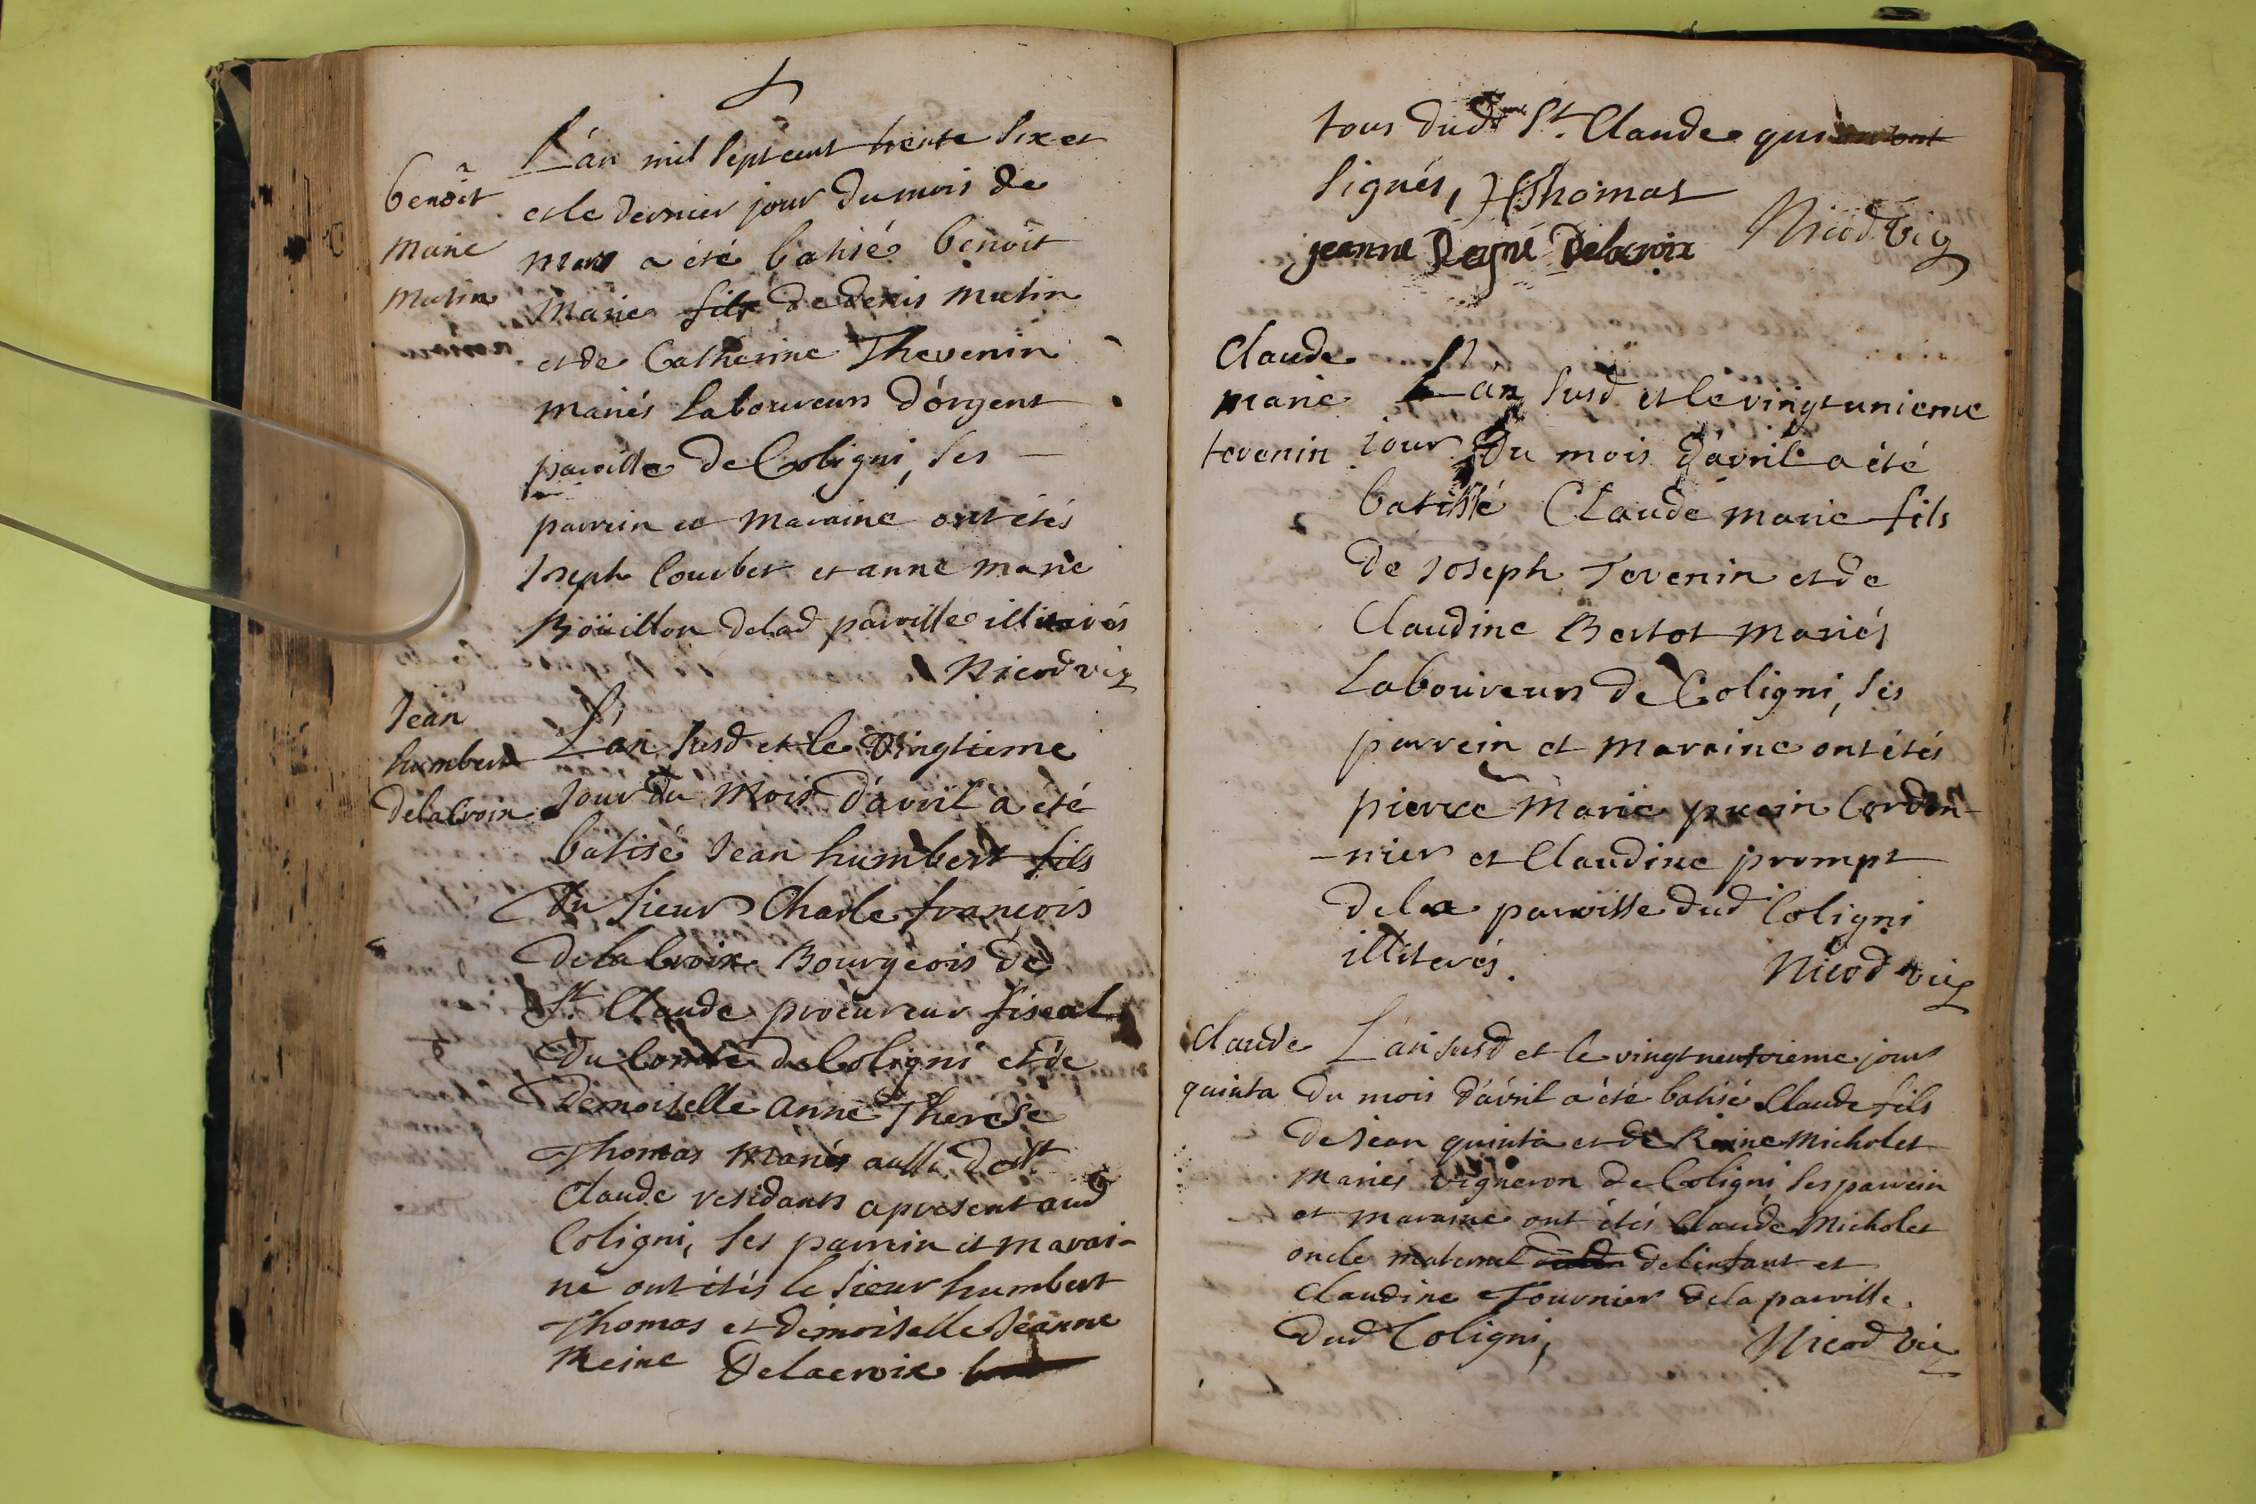 benoit
marie
mutin
L'an mil sept cent trente six et
et le dernier jour du mois de
mars a été batisé benoit
marie fils de denis mutin
et de Catherine Thevenin
mariés laboureurs d'orgent
paroisse de Coligni, ses
parrein et maraine ont étés
Joseph Courbet et anne marie
Boüillon de lad paroisse illiterés
Nicod vic
Jean
humbert
delaCroix
L'an susd et le vingtieme
Jour du mois d'avril a été
batisé Jean humbert fils
du sieur Charle françois
delaCroix Bourgeois de
St. Claude procureur fiscal
du Comté de Coligni et de
Demoiselle anne Therese
Thomas mariés aussi de St
Claude residants a present aud
Coligni, ses parrein et marai-
ne ont étés le sieur humbert
Thomas et demoiselle Jeanne
Reine Delacroix
tous dud St. Claude qui ont
signés, H Thomas
jeanne Reyne Delacroix Nicod Vic
Claude
marie
tevenin
L'an susd et le vingt unieme
jour du mois d'avril a été
batissé Claude marie fils
de Joseph Tevenin et de
Claudine Bertot mariés
Laboureurs de Coligni, ses
parrein et marraine ont étés
pierre Marie puvin Cordon-
-nier et Claudine prompt
de la paroisse dud Coligni
illiterés.
Nicod vic
Claude
quinta
L'an susd et le vingt neufvieme jour
du mois d'avril a été batisé Claude fils
de Jean quinta et de Reine Micholet
mariés vigneron de Coligni ses parrein
et maraine ont étés Claude Micholet
oncle maternel de l'enfant et
Claudine Tournier de la paroisse
dud Coligni, Nicod Vic